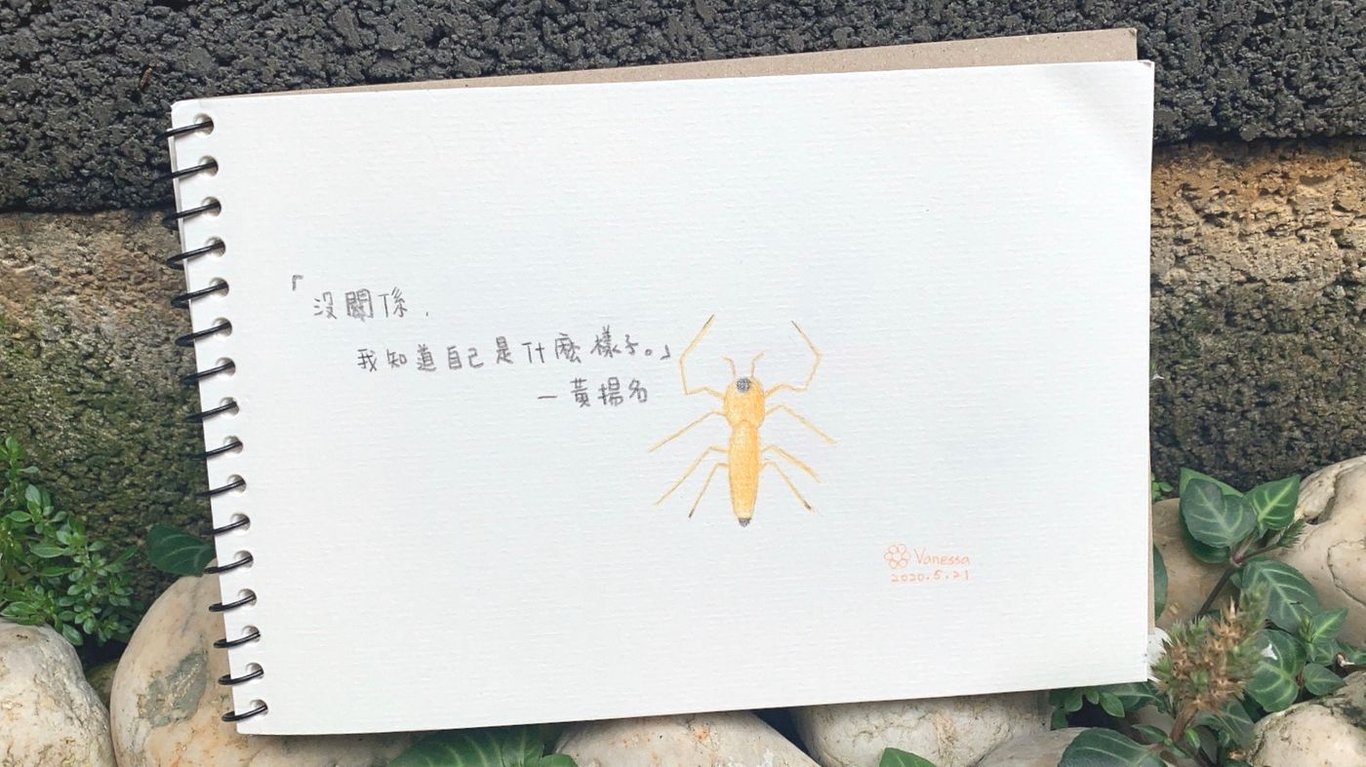 「沒關係，
我知道自己是什麼樣子。」
—黃揚名
Vanessa
2020.5.21